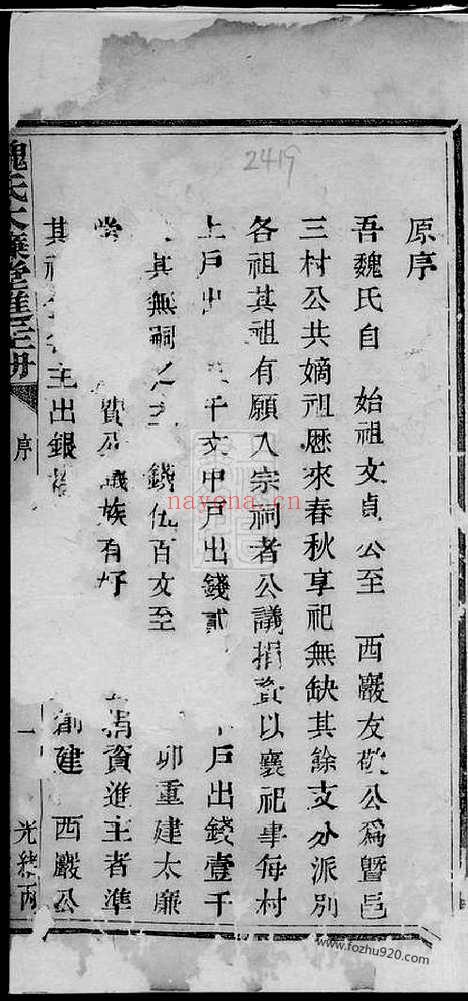 2419
原序
吾魏氏自 始祖文貞公至 西巖友敬公爲暨邑
三村公共嫡祖歷來春秋享祀無缺其餘支分派別
各祖其祖有願入宗祠者公議捐資以襄祀事每村
上戶出 千文中戶出錢貳 戶出錢壹千
其無祠之主 錢伍百文至 卯重建太廉
堂 資公議族有好 捐資進主者準
其 主出銀 創建 西巖公
魏氏太廉堂進主冊
序
一
光緒丙
nayona.cn
www.fozhu920.com